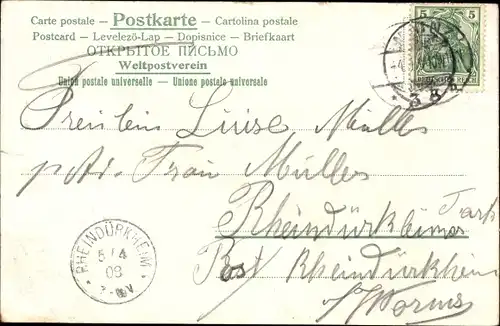 Carte postale - Postkarte - Cartolina postale
Postcard - Levelező-Lap - Dopisnice - Briefkaart
ОТКРЫТОЕ ПИСЬМО
Weltpostverein
Union postale universelle - Unione postale universale
5 5
DEUTSCHES REICH
Fräulein Luise Müller
p. Adr. Frau Müller
Rheindürkheimer Fark
Post Rheindürkheim
b/Worms
RHEINDÜRKHEIM
5/4
03